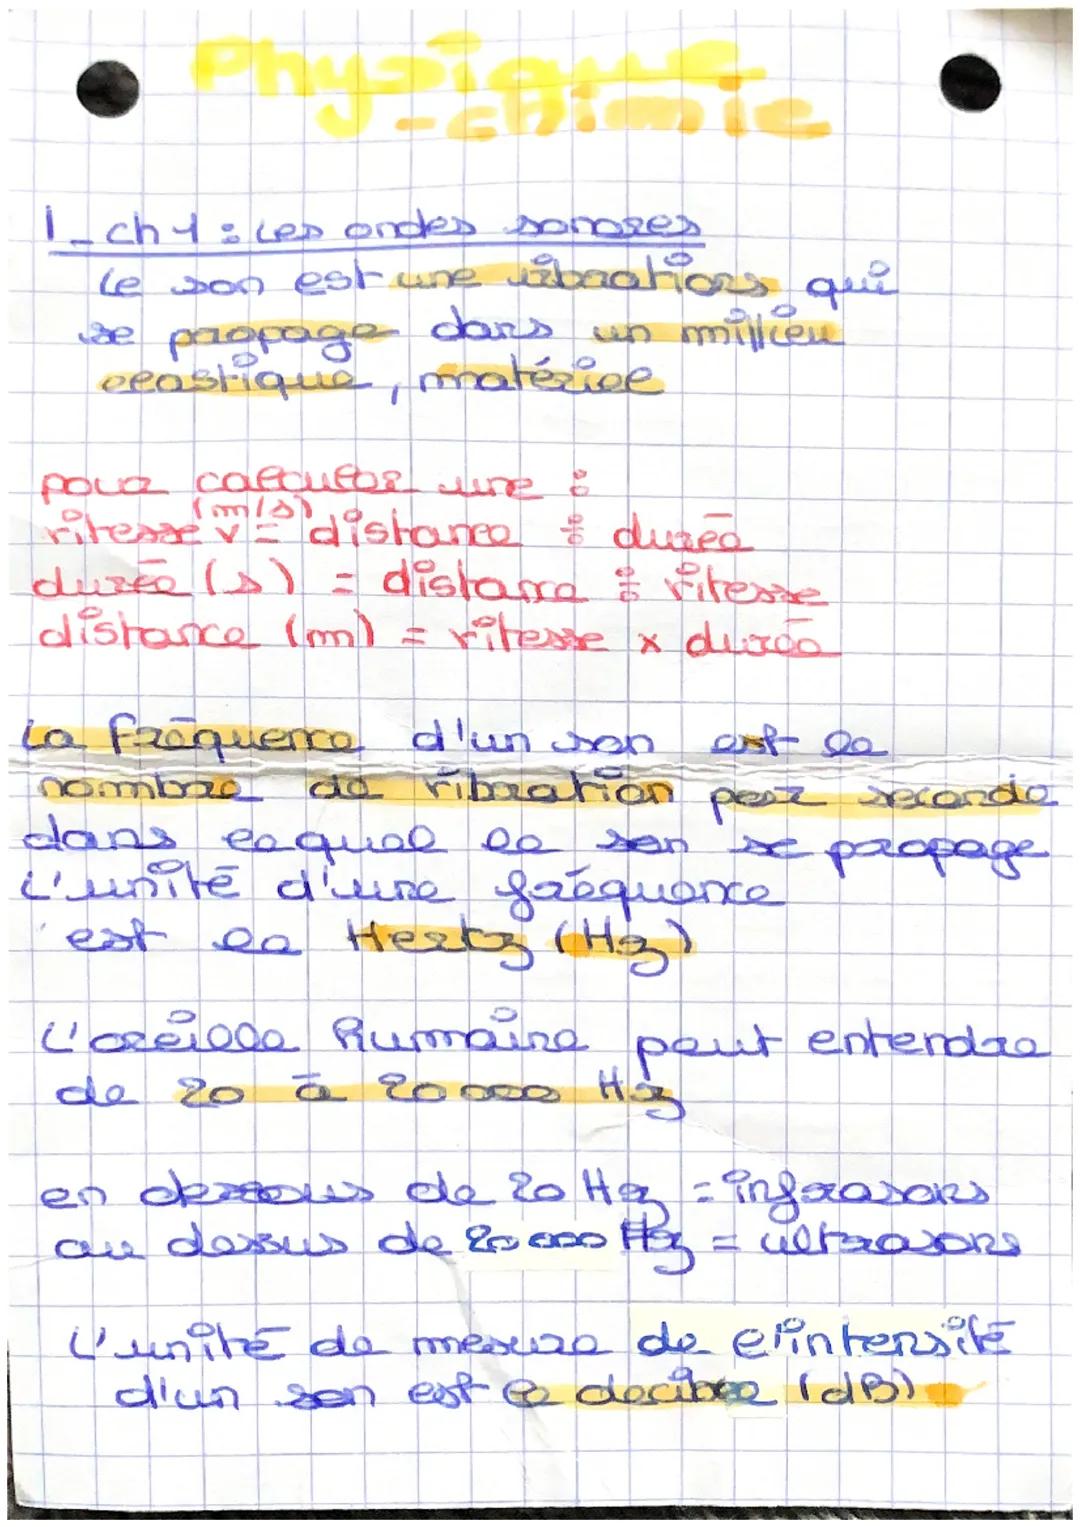 Physique
-chimie
I_ch1 : Les ondes sonores
Le son est une vibrations qui
se propage dans un millieu
élastique, matériel
pour calculer une :
vitesse v (m/s) = distance ÷ durée
durée (s) = distance ÷ vitesse
distance (m) = vitesse x durée
La fréquence d'un son est le
nombre de vibration par seconde
dans lequel le son se propage
L'unité d'une fréquence
est le Hertz (Hz)
L'oreille humaine peut entendre
de 20 à 20 000 Hz
en dessous de 20 Hz = infrasons
au dessus de 20 000 Hz = ultrasons
L'unité de mesure de l'intensité
d'un son est le decibel (dB)